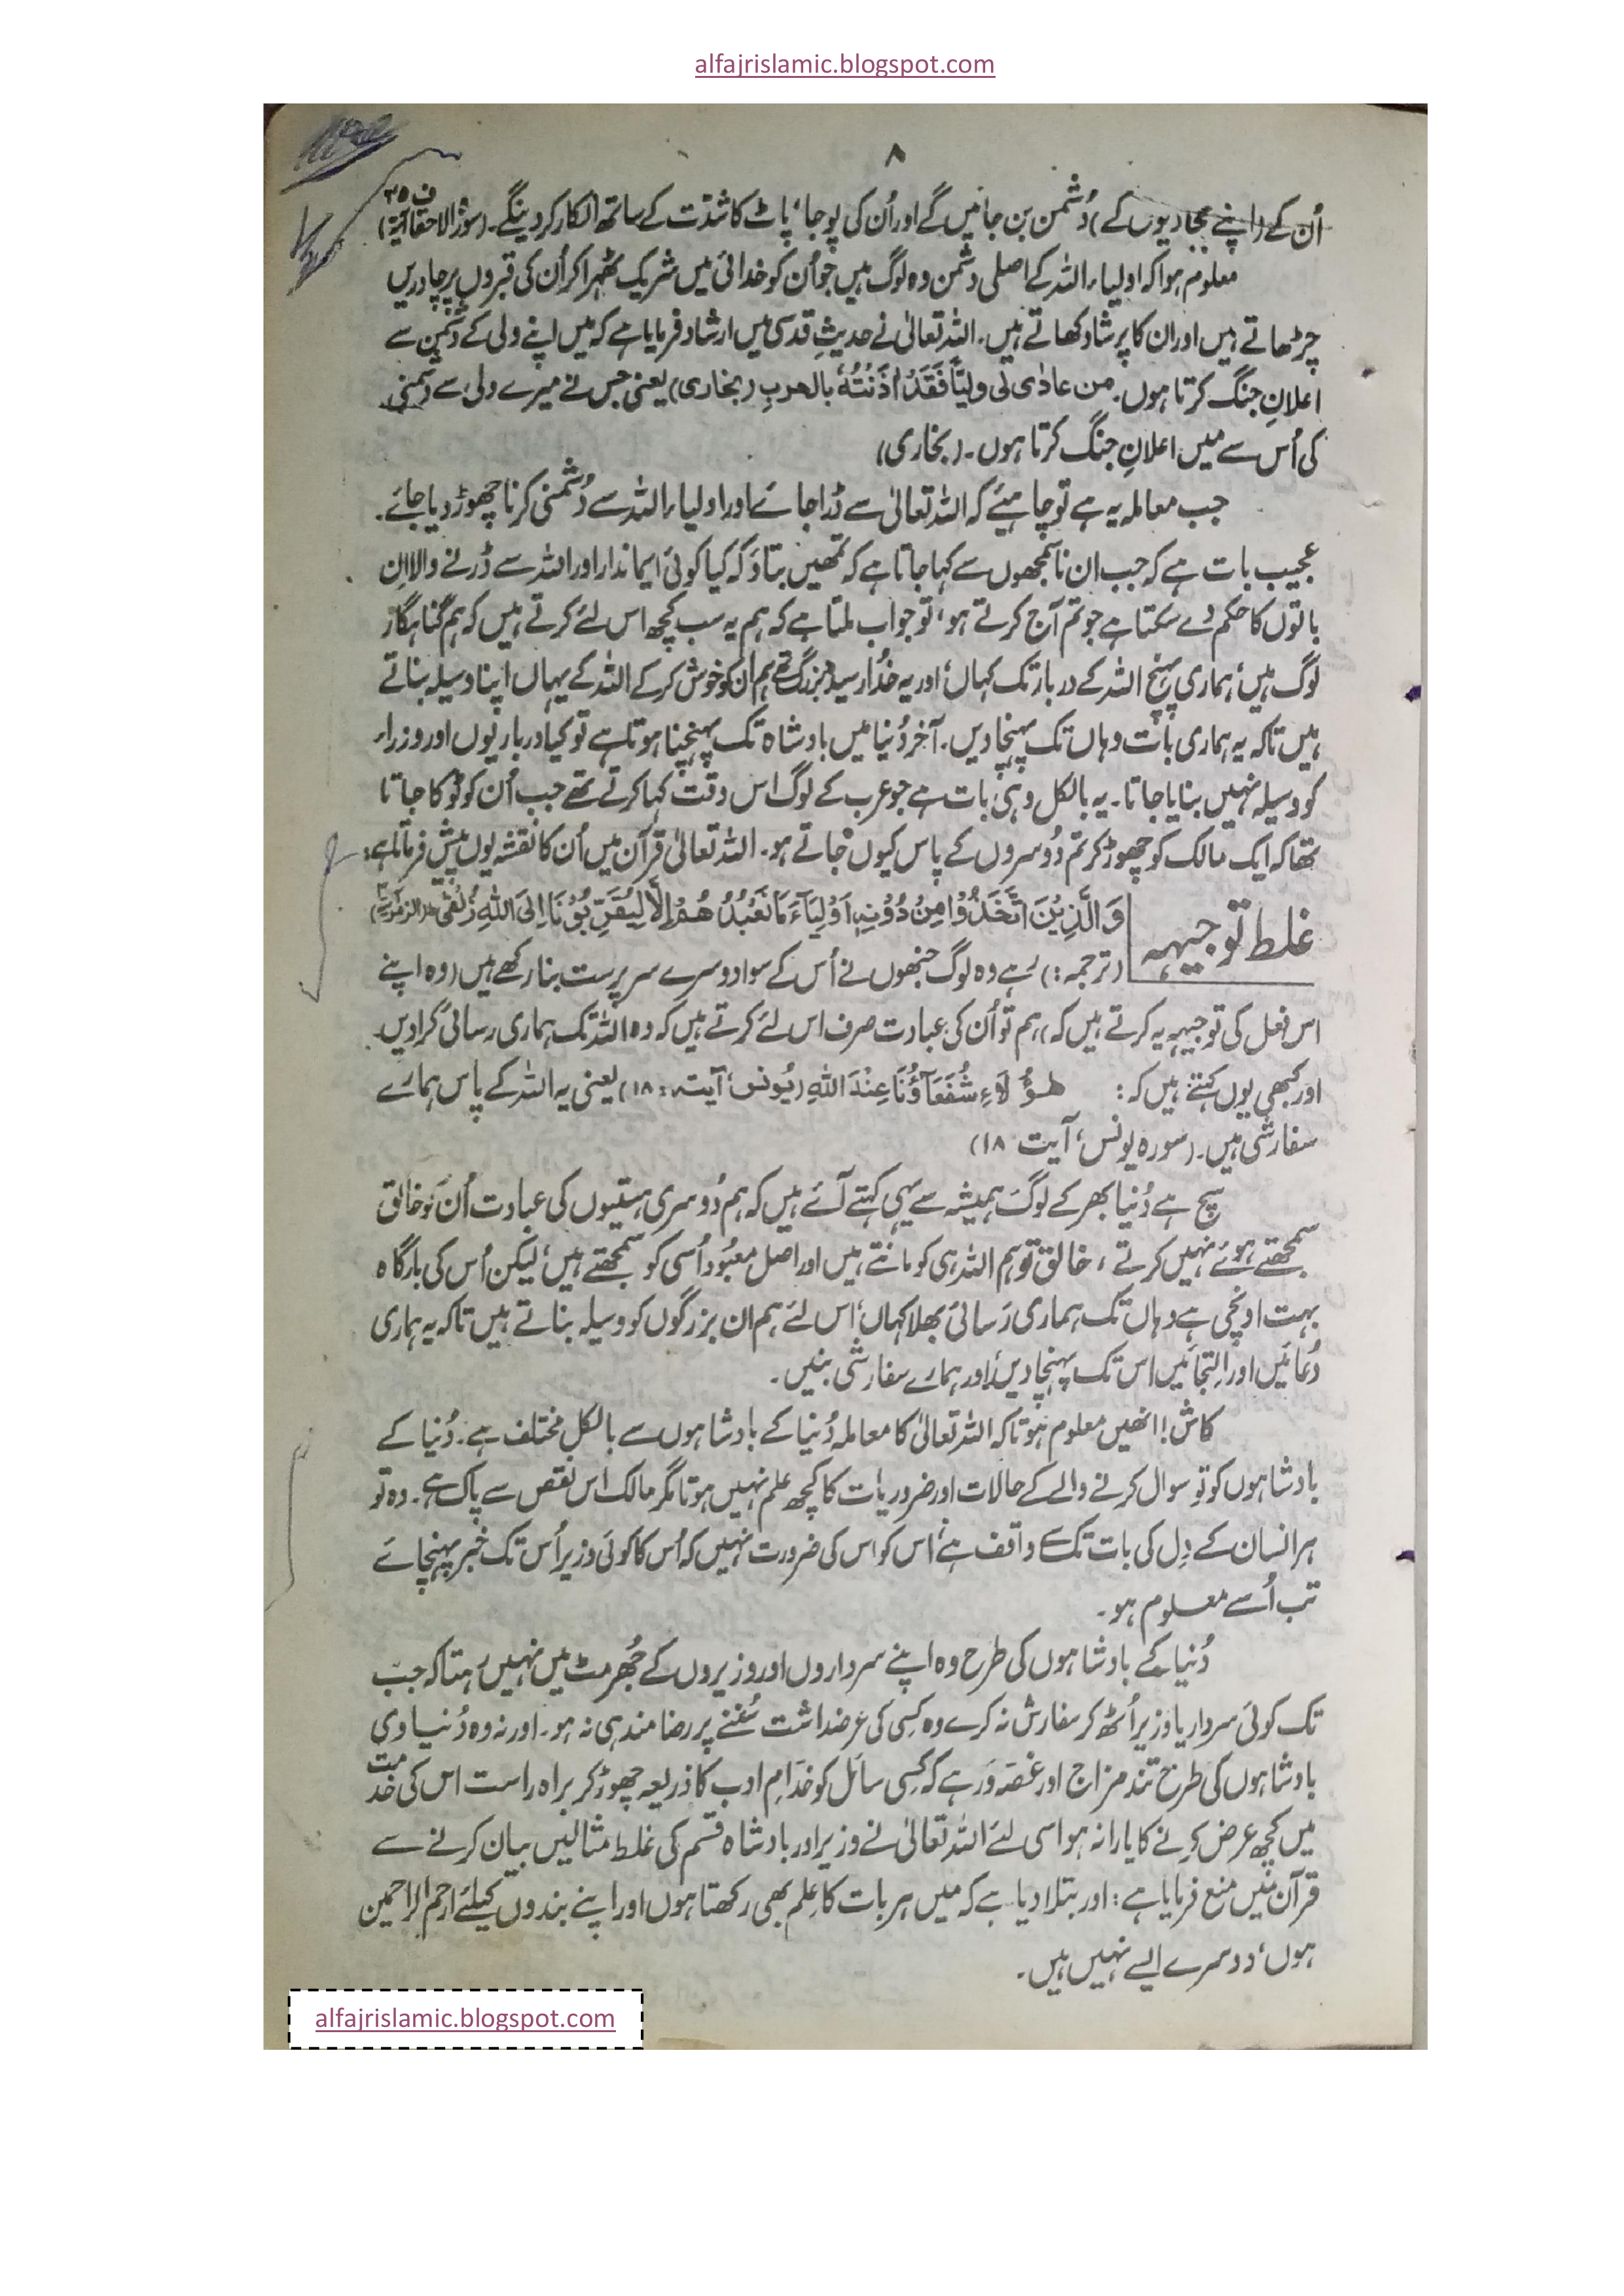 alfajrislamic.blogspot.com
۸
اُن کے (اپنے پجاریوں کے) دُشمن بن جائیں گے اور اُن کی پوجا، پاٹ کا شدّت کے ساتھ انکار کر دینگے۔ (سورۃ الاحقاف آیۃ)
معلوم ہوا کہ اولیاء اللہ کے اصلی دشمن وہ لوگ ہیں جو اُن کو خدائی میں شریک ٹھہرا کر اُن کی قبروں پر چادریں
چڑھاتے ہیں اور ان کا پرشاد کھاتے ہیں۔ اللہ تعالیٰ نے حدیثِ قدسی میں ارشاد فرمایا ہے کہ میں اپنے ولی کے دشمن سے
اعلانِ جنگ کرتا ہوں۔ من عادٰی لی ولیّاً فَقَدْ اٰذَنْتُہٗ بالحربِ (بخاری) یعنی جس نے میرے ولی سے دشمنی
کی اُس سے میں اعلانِ جنگ کرتا ہوں۔ (بخاری)
جب معاملہ یہ ہے تو چاہیئے کہ اللہ تعالیٰ سے ڈرا جائے اور اولیاء اللہ سے دُشمنی کرنا چھوڑ دیا جائے۔
عجیب بات ہے کہ جب ان ناسمجھوں سے کہا جاتا ہے کہ تمھیں بتاؤ کہ کیا کوئی ایماندار اور اللہ سے ڈرنے والا اِن
باتوں کا حکم دے سکتا ہے جو تم آج کرتے ہو، تو جواب ملتا ہے کہ ہم یہ سب کچھ اس لئے کرتے ہیں کہ ہم گناہگار
لوگ ہیں، ہماری پہنچ اللہ کے دربار تک کہاں، اور یہ خدا رسیدہ بزرگ تھے ہم ان کو خوش کر کے اللہ کے یہاں اپنا وسیلہ بناتے
ہیں تاکہ یہ ہماری بات وہاں تک پہنچا دیں۔ آخر دُنیا میں بادشاہ تک پہنچنا ہوتا ہے تو کیا درباریوں اور وزراء
کو وسیلہ نہیں بنایا جاتا۔ یہ بالکل وہی بات ہے جو عرب کے لوگ اس وقت کہا کرتے تھے جب اُن کو ٹوکا جاتا
تھا کہ ایک مالک کو چھوڑ کر تم دُوسروں کے پاس کیوں جاتے ہو۔ اللہ تعالیٰ قرآن میں اُن کا نقشہ یوں پیش فرماتا ہے:
غلط توجیہہ
وَالَّذِیْنَ اتَّخَذُوْا مِنْ دُوْنِہٖ اَوْلِیَآءَ مَا نَعْبُدُ ھُمْ اِلَّا لِیُقَرِّبُوْنَا اِلَی اللہِ زُلْفٰی
(ترجمہ:) رہے وہ لوگ جنھوں نے اُس کے سوا دوسرے سرپرست بنا رکھے ہیں (وہ اپنے
اس فعل کی توجیہہ یہ کرتے ہیں کہ) ہم تو اُن کی عبادت صرف اس لئے کرتے ہیں کہ وہ اللہ تک ہماری رسائی کرا دیں۔
اور کبھی یوں کہتے ہیں کہ: ھٰؤُلَاءِ شُفَعَآؤُنَا عِنْدَ اللہِ (یُونس، آیت: ۱۸) یعنی یہ اللہ کے پاس ہمارے
سفارشی ہیں۔ (سورہ یونس، آیت ۱۸)
سچ ہے دُنیا بھر کے لوگ ہمیشہ سے یہی کہتے آئے ہیں کہ ہم دُوسری ہستیوں کی عبادت اُن کو خالق
سمجھتے ہوئے نہیں کرتے، خالق تو ہم اللہ ہی کو مانتے ہیں اور اصل معبُود اُسی کو سمجھتے ہیں، لیکن اُس کی بارگاہ
بہت اونچی ہے وہاں تک ہماری رَسائی بھلا کہاں، اس لئے ہم ان بزرگوں کو وسیلہ بناتے ہیں تاکہ یہ ہماری
دُعائیں اور اِلتجائیں اس تک پہنچا دیں اور ہمارے سفارشی بنیں۔
کاش! انھیں معلوم ہوتا کہ اللہ تعالیٰ کا معاملہ دُنیا کے بادشاہوں سے بالکل مختلف ہے۔ دُنیا کے
بادشاہوں کو تو سوال کرنے والے کے حالات اور ضروریات کا کچھ علم نہیں ہوتا مگر مالک اس نقص سے پاک ہے۔ وہ تو
ہر انسان کے دِل کی بات تک سے واقف ہے، اس کو اس کی ضرورت نہیں کہ اُس کا کوئی وزیر اُس تک خبر پہنچائے
تب اُسے معلوم ہو۔
دُنیا کے بادشاہوں کی طرح وہ اپنے سرداروں اور وزیروں کے جُھرمٹ میں نہیں رہتا کہ جب
تک کوئی سردار یا وزیر اُٹھ کر سفارش نہ کرے وہ کِسی کی عرضداشت سُننے پر رضامند ہی نہ ہو۔ اور نہ وہ دُنیاوی
بادشاہوں کی طرح تند مزاج اور غصّہ وَر ہے کہ کِسی سائل کو خدّامِ ادب کا ذریعہ چھوڑ کر براہ راست اس کی خدمت
میں کچھ عرض کرنے کا یارا نہ ہو اسی لئے اللہ تعالیٰ نے وزیر اور بادشاہ قسم کی غلط مثالیں بیان کرنے سے
قرآن میں منع فرمایا ہے: اور بتلا دیا ہے کہ میں ہر بات کا عِلم بھی رکھتا ہوں اور اپنے بندوں کیلئے ارحم الراحمین
ہوں، دوسرے ایسے نہیں ہیں۔
alfajrislamic.blogspot.com